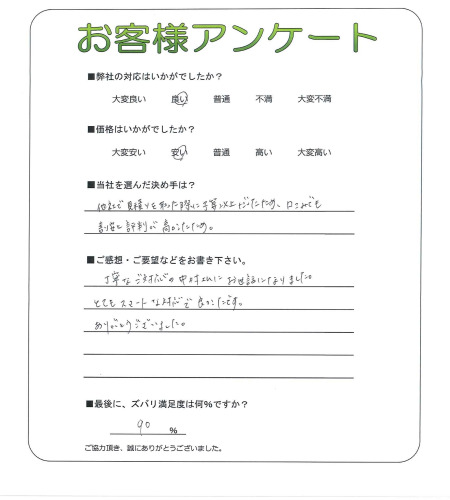 お客様アンケート
■弊社の対応はいかがでしたか？
大変良い 良い 普通 不満 大変不満
■価格はいかがでしたか？
大変安い 安い 普通 高い 大変高い
■当社を選んだ決め手は？
他社で見積りを取った際に予算以上だったため、口コミでも
割安と評判が高かったため。
■ご感想・ご要望などをお書き下さい。
丁寧なご対応の中 お世話になりました
とてもスマートな対応で良かったです。
ありがとうございました。
■最後に、ズバリ満足度は何％ですか？
90 ％
ご協力頂き、誠にありがとうございました。